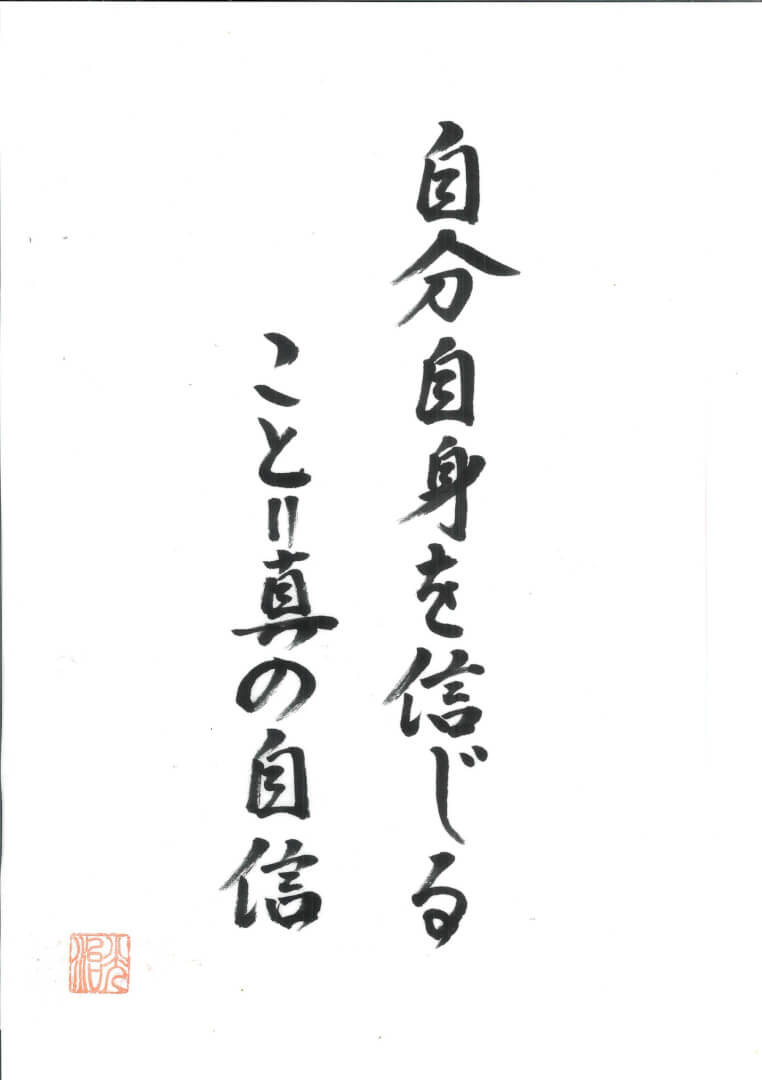 自分自身を信じる
こと=真の自信